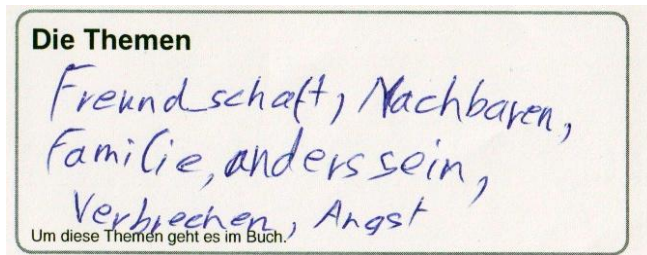 Die Themen
Freundschaft, Nachbaren,
Familie, anders sein,
Verbrechen, Angst
Um diese Themen geht es im Buch.